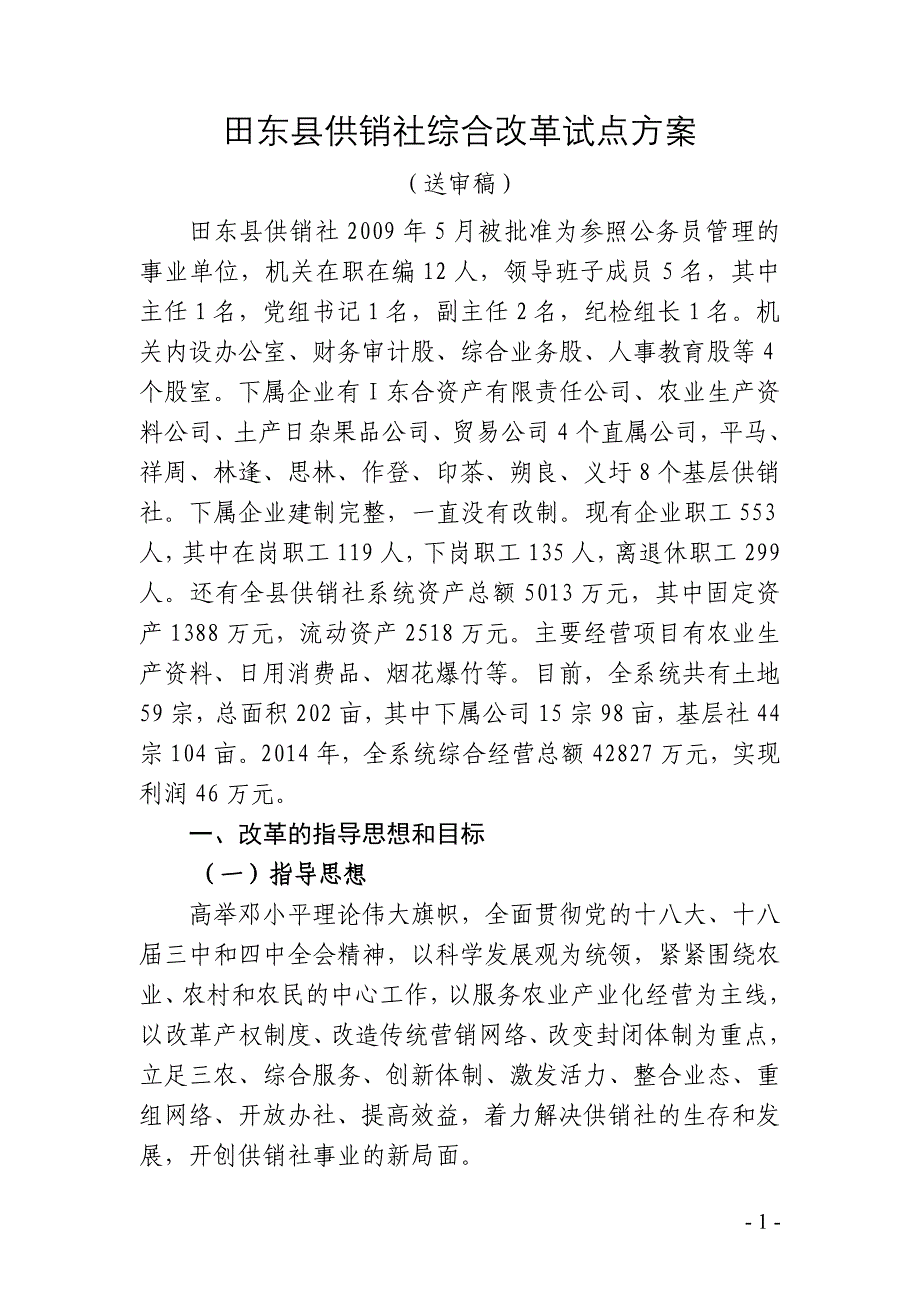 田东县供销社综合改革试点方案
（送审稿）
田东县供销社 2009 年 5 月被批准为参照公务员管理的
事业单位，机关在职在编 12 人，领导班子成员 5 名，其中
主任 1 名，党组书记 1 名，副主任 2 名，纪检组长 1 名。机
关内设办公室、财务审计股、综合业务股、人事教育股等 4
个股室。下属企业有 I 东合资产有限责任公司、农业生产资
料公司、土产日杂果品公司、贸易公司 4 个直属公司，平马、
祥周、林逢、思林、作登、印茶、朔良、义圩 8 个基层供销
社。下属企业建制完整，一直没有改制。现有企业职工 553
人，其中在岗职工 119 人，下岗职工 135 人，离退休职工 299
人。还有全县供销社系统资产总额 5013 万元，其中固定资
产 1388 万元，流动资产 2518 万元。主要经营项目有农业生
产资料、日用消费品、烟花爆竹等。目前，全系统共有土地
59 宗，总面积 202 亩，其中下属公司 15 宗 98 亩，基层社 44
宗 104 亩。2014 年，全系统综合经营总额 42827 万元，实现
利润 46 万元。
一、改革的指导思想和目标
（一）指导思想
高举邓小平理论伟大旗帜，全面贯彻党的十八大、十八
届三中和四中全会精神，以科学发展观为统领，紧紧围绕农
业、农村和农民的中心工作，以服务农业产业化经营为主线，
以改革产权制度、改造传统营销网络、改变封闭体制为重点，
立足三农、综合服务、创新体制、激发活力、整合业态、重
组网络、开放办社、提高效益，着力解决供销社的生存和发
展，开创供销社事业的新局面。
- 1 -